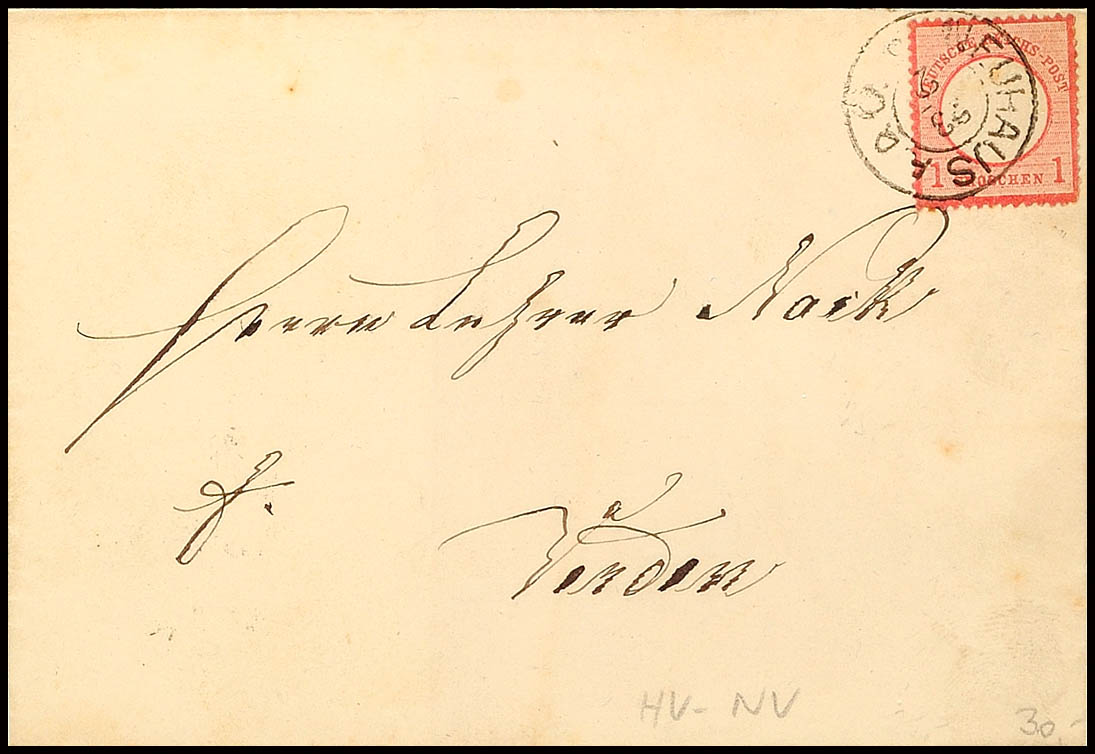 NEUHAUS A. D. O.
DEUTSCHE REICHS-POST
1 GROSCHEN 1
Herrn Lehrer Nack
f.
Verden
HV- NV
30.-